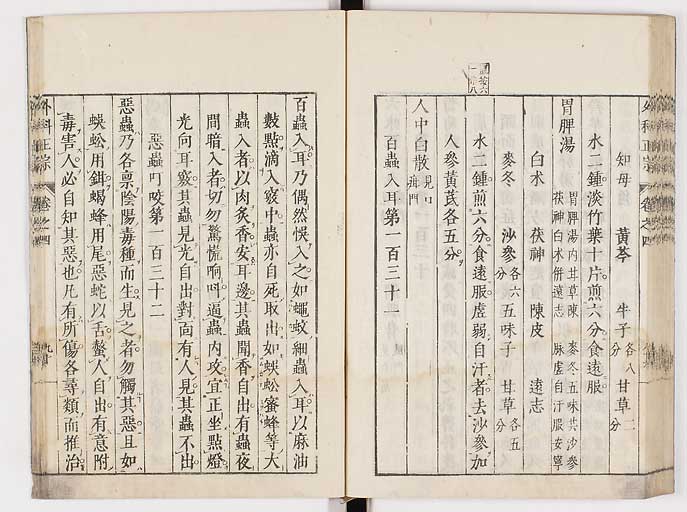 知母 黃芩 牛子各八分 甘草二分
水二鍾淡竹葉十片煎六分食遠服
胃脾湯 胃脾湯內甘草陳 麥冬五味共沙參
茯神白朮併遠志 脉虛自汗服安寧
白朮 茯神 陳皮 遠志
麥冬 沙參各六分 五味子 甘草各五分
水二鍾煎六分食遠服虛弱自汗者去沙參加
人參黃芪各五分
人中白散見口疳門
百蟲入耳第一百三十一
百蟲入耳乃偶然悞入之如蠅蚊細蟲入耳以麻油
數點滴入竅中蟲亦自死取出如蜈蚣蜜蜂等大
蟲入者以肉炙香安耳邊其蟲聞香自出有蟲夜
間暗入者切勿驚慌响叫逼蟲內攻宜正坐點燈
光向耳竅其蟲見光自出對面有人見其蟲不出
惡蟲叮咬第一百三十二
惡蟲乃各禀陰陽毒種而生見之者勿觸其惡且如
蜈蚣用鉗蝎蜂用尾惡蛇以舌螫人自出有意附
毒害人必自知其惡也凡有所傷各尋類而推治
外科正宗 卷之四 九十
外科正宗 卷之四